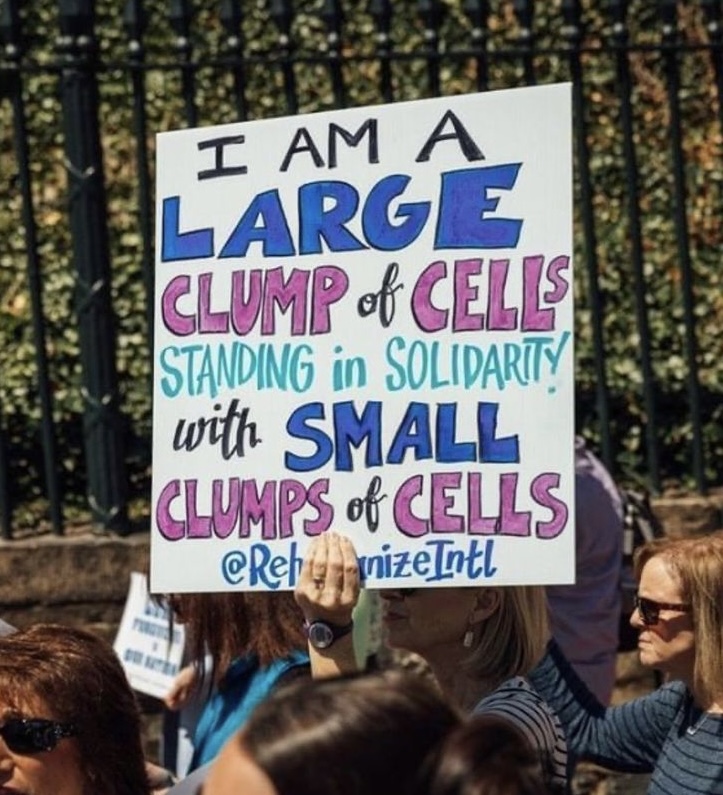 I AM A
LARGE
CLUMP of CELLS
STANDING in SOLIDARITY
with SMALL
CLUMPS of CELLS
@Reh nizeIntl